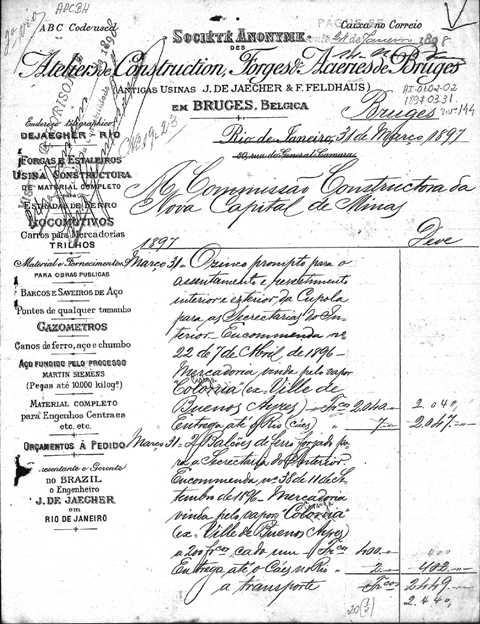 APCBH
ABC Code used
Caixa no Correio
SOCIÉTÉ ANONYME
DES
Ateliers de Construction, Forges & Aciéries de Bruges
(ANTIGAS USINAS J. DE JAECHER & F. FELDHAUS)
EM BRUGES, BELGICA
Bruges
Endereço telegraphico
DEJAEGHER RIO
Rio de Janeiro, 31 de Março 1897
FORGAS E ESTALEIROS
USINA CONSTRUCTORA
DE MATERIAL COMPLETO
ESTRADAS DE FERRO
LOCOMOTIVOS
Carros para Mercadorias
TRILHOS
Material e Fornecimentos
PARA OBRAS PUBLICAS
BARCOS E SAVEIROS DE AÇO
Pontes de qualquer tamanho
GAZOMETROS
Canos de ferro, aço e chumbo
AÇO FUNDIDO PELO PROCESSO
MARTIN SIEMENS
(Peças até 10.000 kilogs)
MATERIAL COMPLETO
para Engenhos Centraes
etc. etc.
ORÇAMENTOS Á PEDIDO
Representante e Gerente
NO BRAZIL
o Engenheiro
J. DE JAEGHER
em
RIO DE JANEIRO
A Commissão Constructora da
Nova Capital de Minas
Deve
1897
Março 31 - O zinco prompto para o
assentamento e revestimento
interior e exterior da Cupola
para as Secretarias do In-
terior. Encommenda nº
22 de 7 de Abril de 1896 -
Mercadoria vinda pelo vapor
"Colonia" (ex. Ville de
Buenos Ayres) - Frcos 2.040.-
Entrega até o Rio (cáes) 7.- 2.047.-
Março 31 - 2 Balcões de ferro forjado pa-
ra a Secretaria do Interior.
Encommenda nº 38 de 11 de Se-
tembro de 1896. Mercadoria
vinda pelo vapor "Colonia"
(ex. Ville de Buenos Ayres)
a 200 frcos cada um - Frcos 400.-
Entrega até o Cáes no Rio 2.- 402.-
a transporte Frcos 2449.-
2.440,